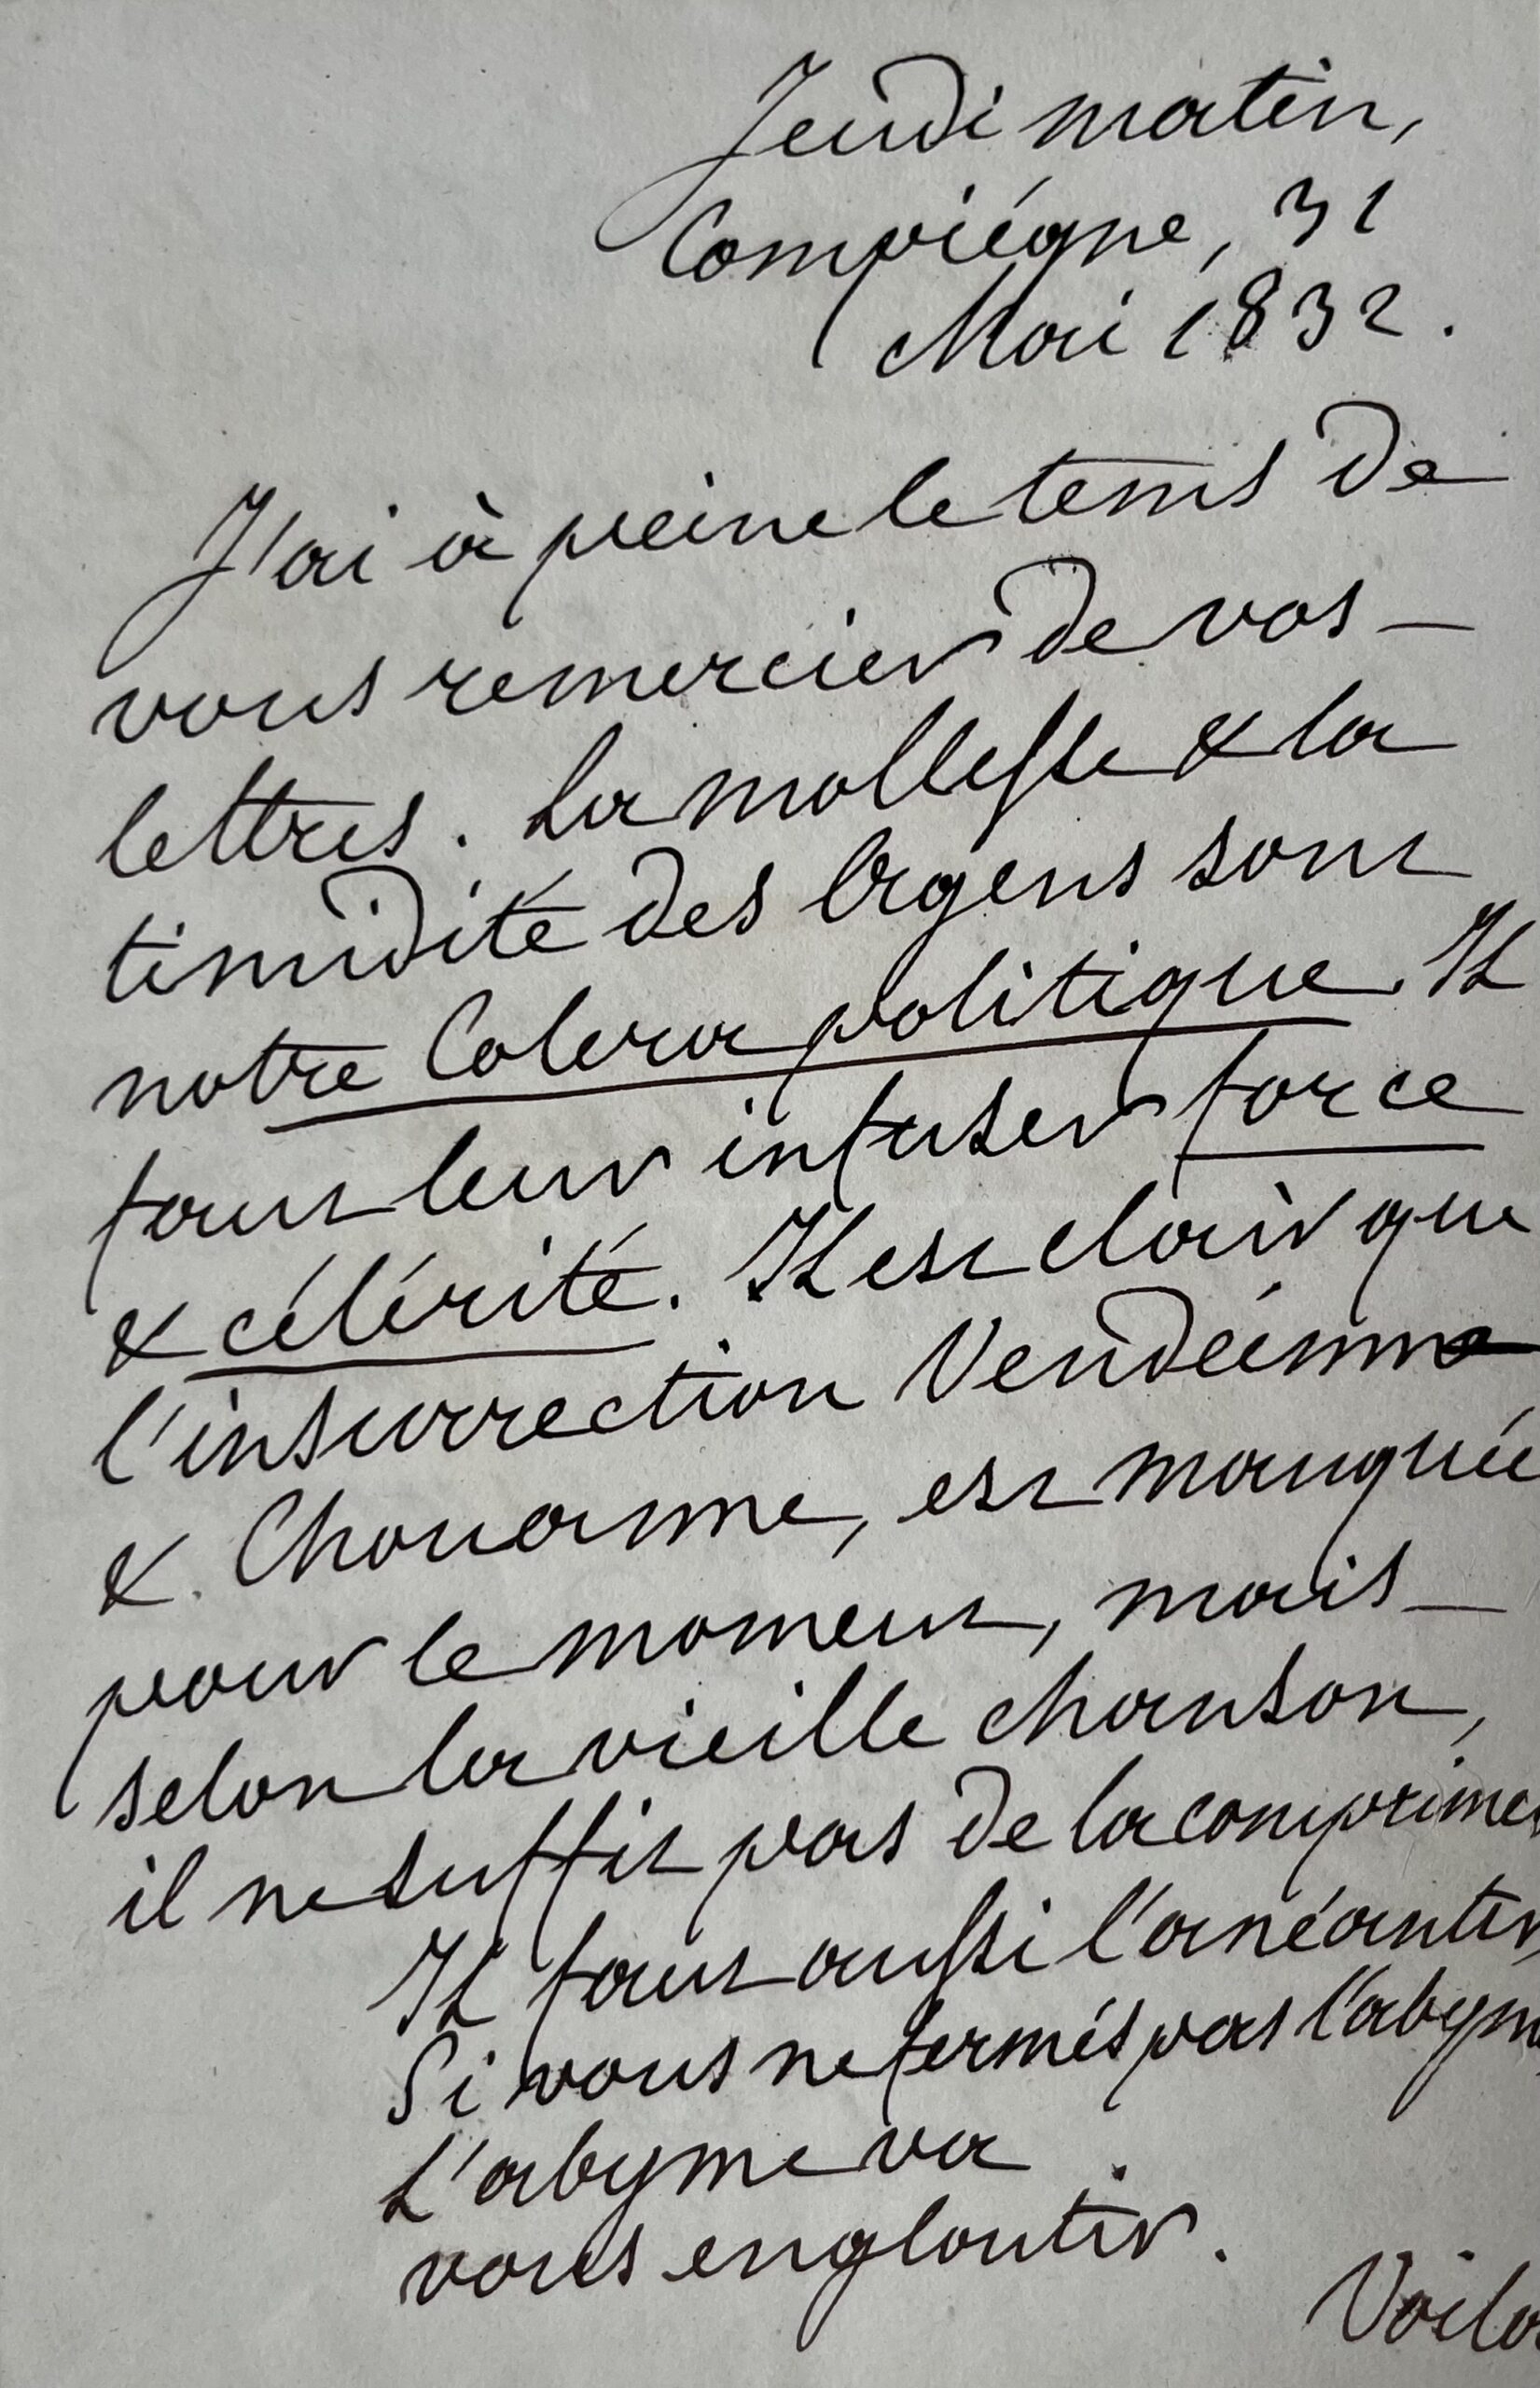 Jeudi matin,
Compiégne, 31
Mai 1832.
J'ai à peine le tems de
vous remercier de vos –
lettres. La mollesse & la
timidité des Agens sont
notre Colera politique. Il
faut leur infuser force
& célérité. Il est clair que
l'insurrection Vendéenne
& Chouanne, est manquée
pour le moment, mais –
selon la vieille chanson,
il ne suffit pas de la comprimer
Il faut aussi l'anéantir
Si vous ne fermés pas l'abyme
L'abyme va
vous engloutir.
Voila